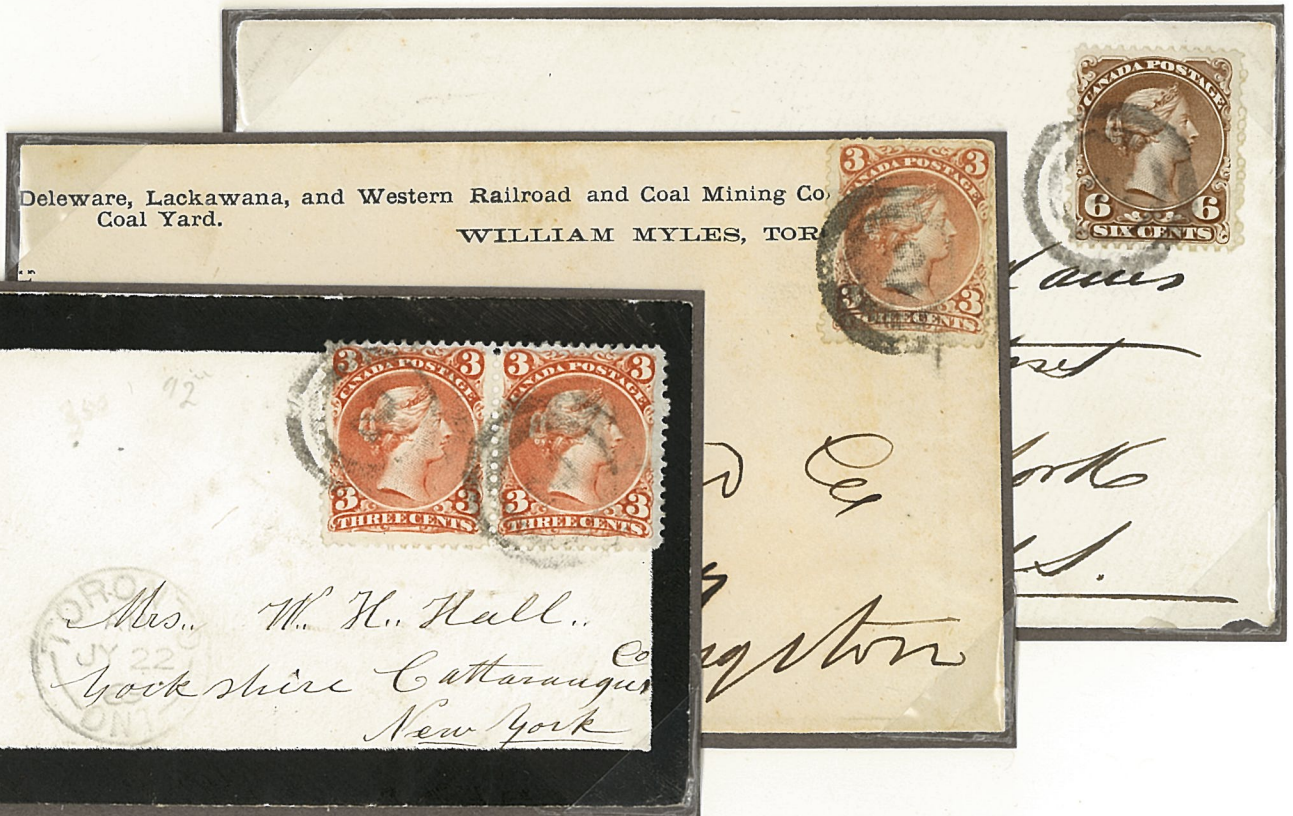 CANADA POSTAGE
6 6
SIX CENTS
Deleware, Lackawana, and Western Railroad and Coal Mining Co,
Coal Yard.
WILLIAM MYLES, TOR
3 3
CANADA POSTAGE
3 3
THREE CENTS
S.
Co
gston
3 3
CANADA POSTAGE
3 3
THREE CENTS
3 3
CANADA POSTAGE
3 3
THREE CENTS
92
TORONTO
JY 22
ONT
Mrs. W. H. Hall.
Co
Yorkshire Cattaraugus
New York